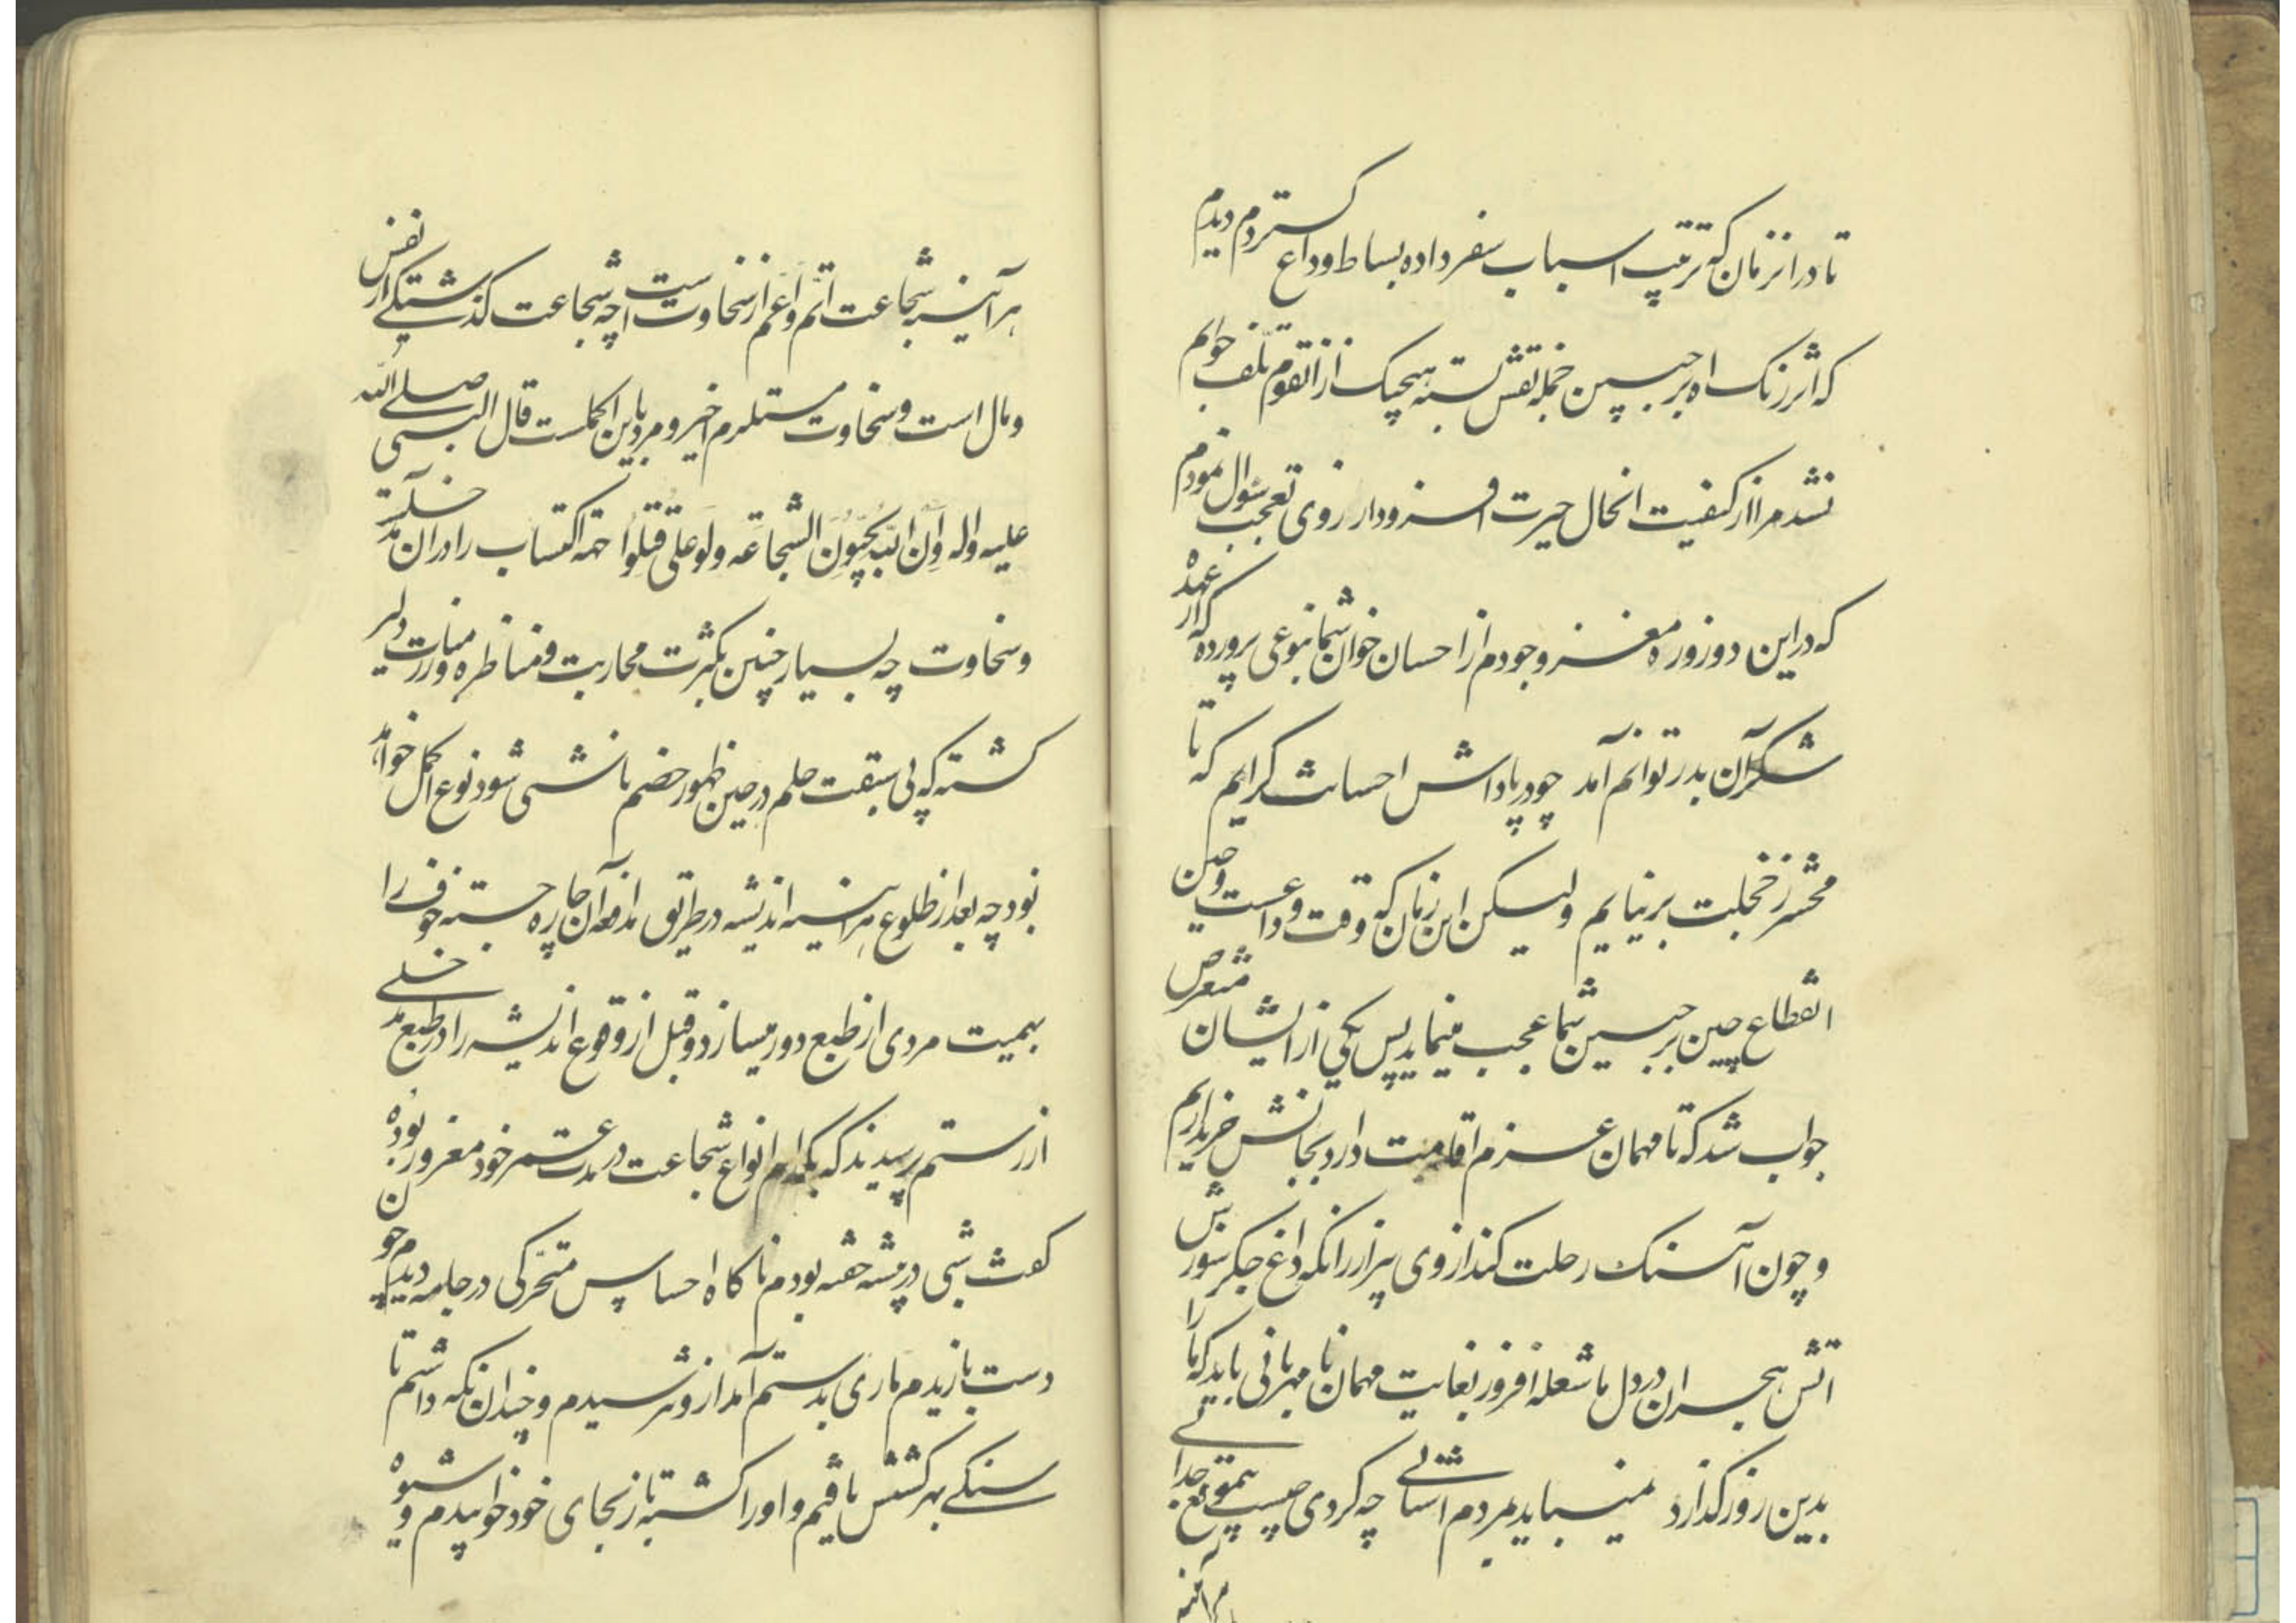 تا در انزمان که ترتیب اسباب سفر داده بساط وداع گستردم دیدم
که اثر زنک اه بر جبین جمله نقش بسته هیچیک از انقوم تلف خوایم
نشد مرا از کیفیت انحال حیرت افزود از روی تعجب سؤال نمودم
که در این دو روزه مغز وجودم از احسان خوان شما بنوعی پرورده که از عهده
شکر آن بدر توانم آمد چو در پاداش احسانت گرایم که تا
محشر ز خجلت بر نیایم ولیکن این زمان که وقت وداعست و حین
انقطاع چین بر جبین شما عجب مینماید پس یکی از ایشان متعرض
جواب شد که تا مهمان عزم اقامت دارد بجانش خریداریم
و چون آهنک رحلت کند از وی بیزار زانکه داغ جکر سوزش
اتش هجران در دل ما شعله افروز بغایت مهمان نا مهربانی باید که ما را
بدین روز گذارد نمیباید بمردم اشنائی چه کردی چیست بیموقع جدائی
هر آینه شجاعت اتم و اعم از سخاوت است چه شجاعت گذشتگی از نفس
و مال است و سخاوت مستلزم اخیر و مرد باین اکملست قال النبی صلی الله
علیه واله وان الله یحبون الشجاعه ولو علی قتلوا حمه اکتساب را در ان مدخلیت
و سخاوت چه بسیار جنین بکثرت محاربت و مناظره و ورزت مبارزت دلیر
کشته که بی سبقت حلم در حین ظهور خصم ناشی شود نوع اکمل خواهد
بود چه بعد از طلوع هر آینه اندیشه در طریق مدافعه آن چاره جسته خوف را
بهمیت مردی از طبع دور میسازد و قبل از وقوع اندیشه را در طبع مدخلی
از رستم پرسیدند که بکدام انواع شجاعت در مدت عمر خود مغرور بوده
گفت شبی در بیشه خفته بودم ناکاه احساس متحرکی در جامه دیدم چون
دست یازیدم ماری بدستم آمد از و نترسیدم و چندان نکه داشتم تا
سنکی بهر کشتنش یافتم و او را کشته باز بجای خود خوابیدم و شیوه